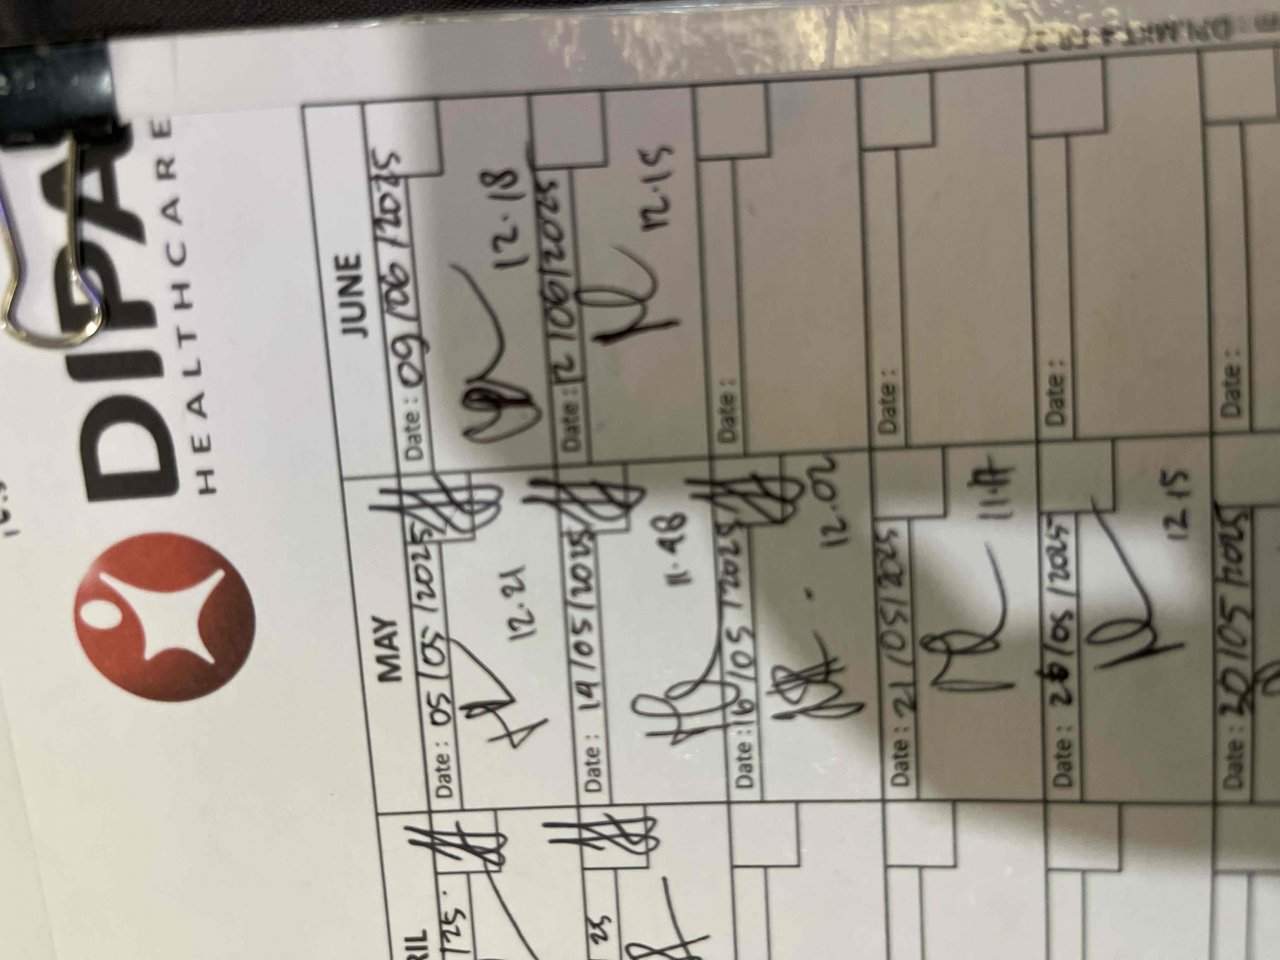 DIPA
HEALTHCARE
RIL
MAY
JUNE
/25
Date: 05/05/2025
12.21
Date: 09/06/2025
12.18
25
Date: 14/05/2025
11.48
Date: 12/06/2025
12.15
Date: 16/05/2025
12.02
Date:
Date: 21/05/2025
Date:
Date: 26/05/2025
12.15
Date:
Date: 30/05/2025
Date: